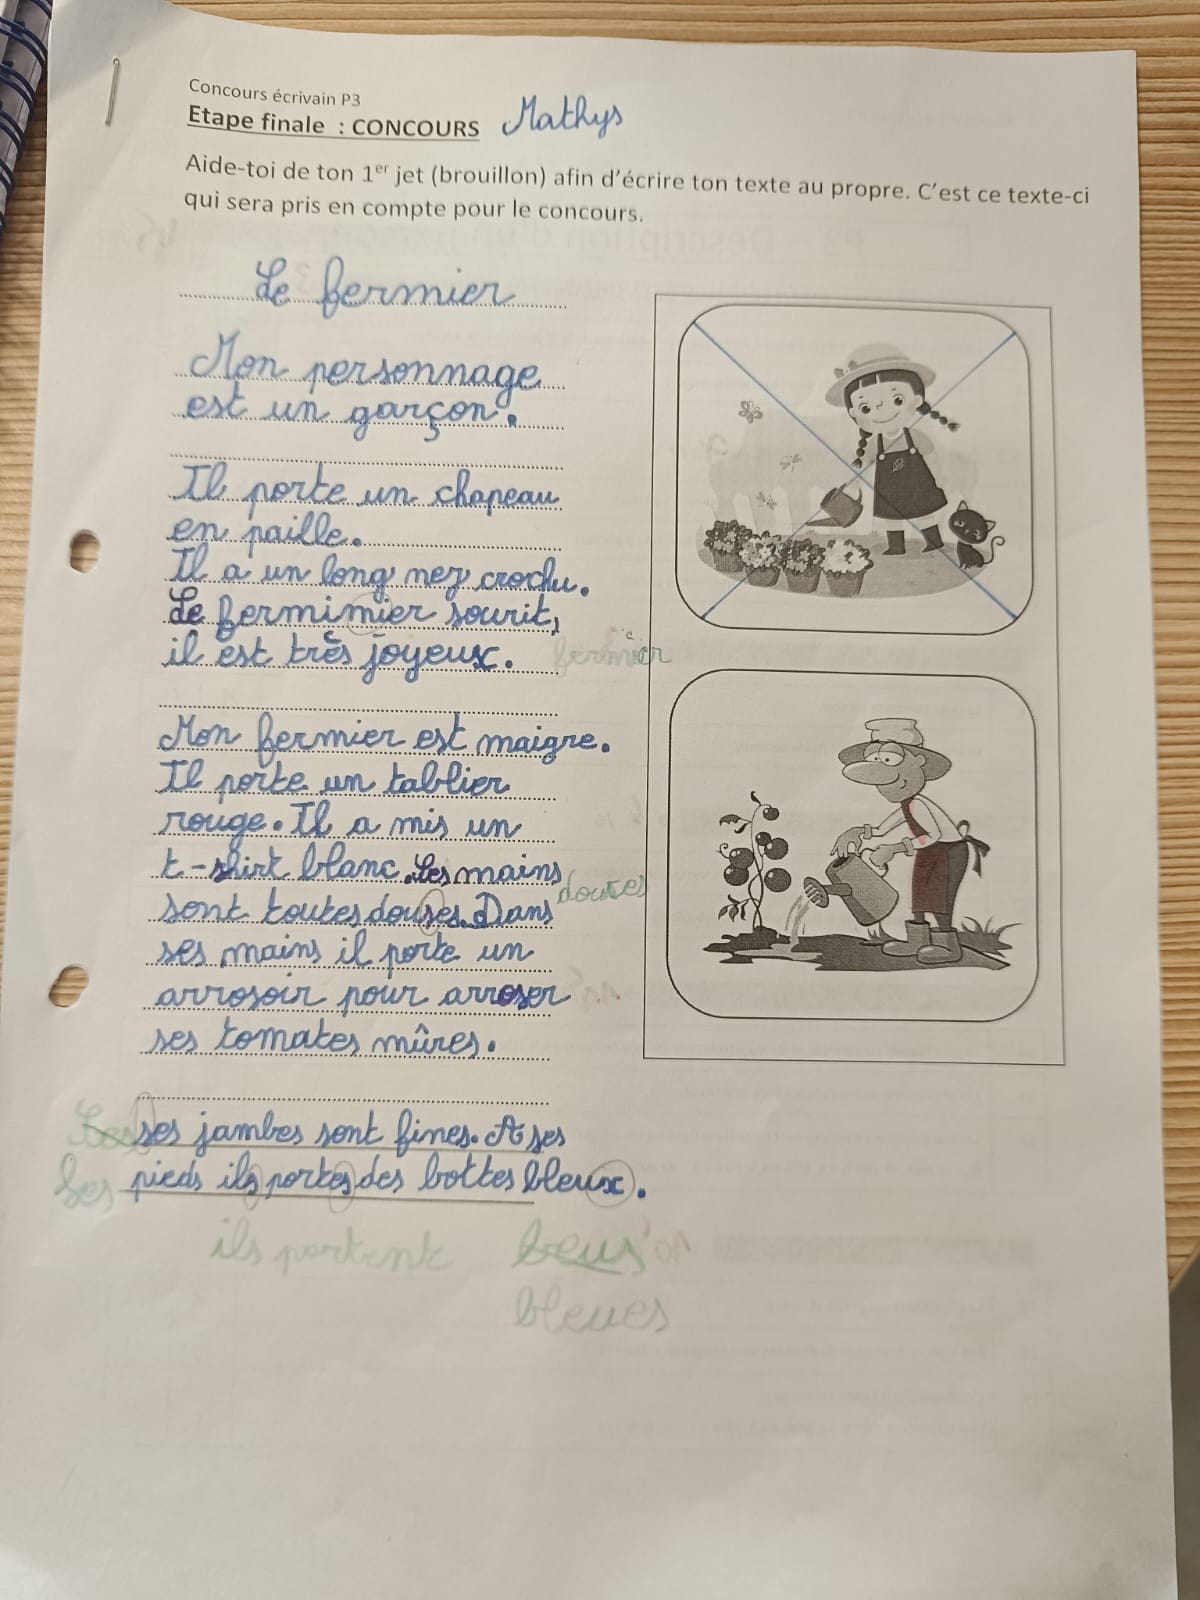 Concours écrivain P3
Etape finale : CONCOURS Mathys
Aide-toi de ton 1er jet (brouillon) afin d'écrire ton texte au propre. C'est ce texte-ci
qui sera pris en compte pour le concours.
Le fermier
Mon personnage
est un garçon.
Il porte un chapeau
en paille.
Il a un long nez crochu.
Le fermimier sourit,
il est très joyeux. fermier
Mon fermier est maigre.
Il porte un tablier
rouge. Il a mis un
t-shirt blanc. Les mains
sont toutes douses. Dans douces
ses mains il porte un
arrosoir pour arroser
ses tomates mûres.
ses jambes sont fines. A ses
Ses pieds ils portes des bottes bleux.
ils portent
bleues